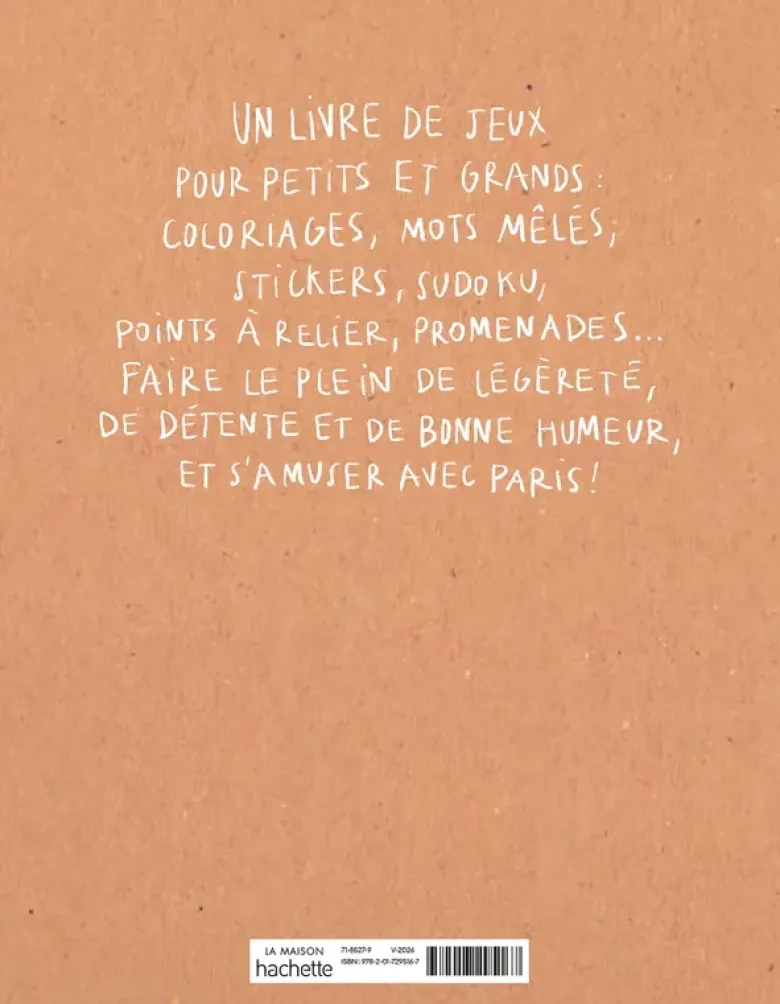 UN LIVRE DE JEUX
POUR PETITS ET GRANDS :
COLORIAGES, MOTS MÊLÉS,
STICKERS, SUDOKU,
POINTS À RELIER, PROMENADES...
FAIRE LE PLEIN DE LÉGÈRETÉ,
DE DÉTENTE ET DE BONNE HUMEUR,
ET S'AMUSER AVEC PARIS !
LA MAISON
hachette
71-8527-9 V-2026
ISBN : 978-2-01-729516-7